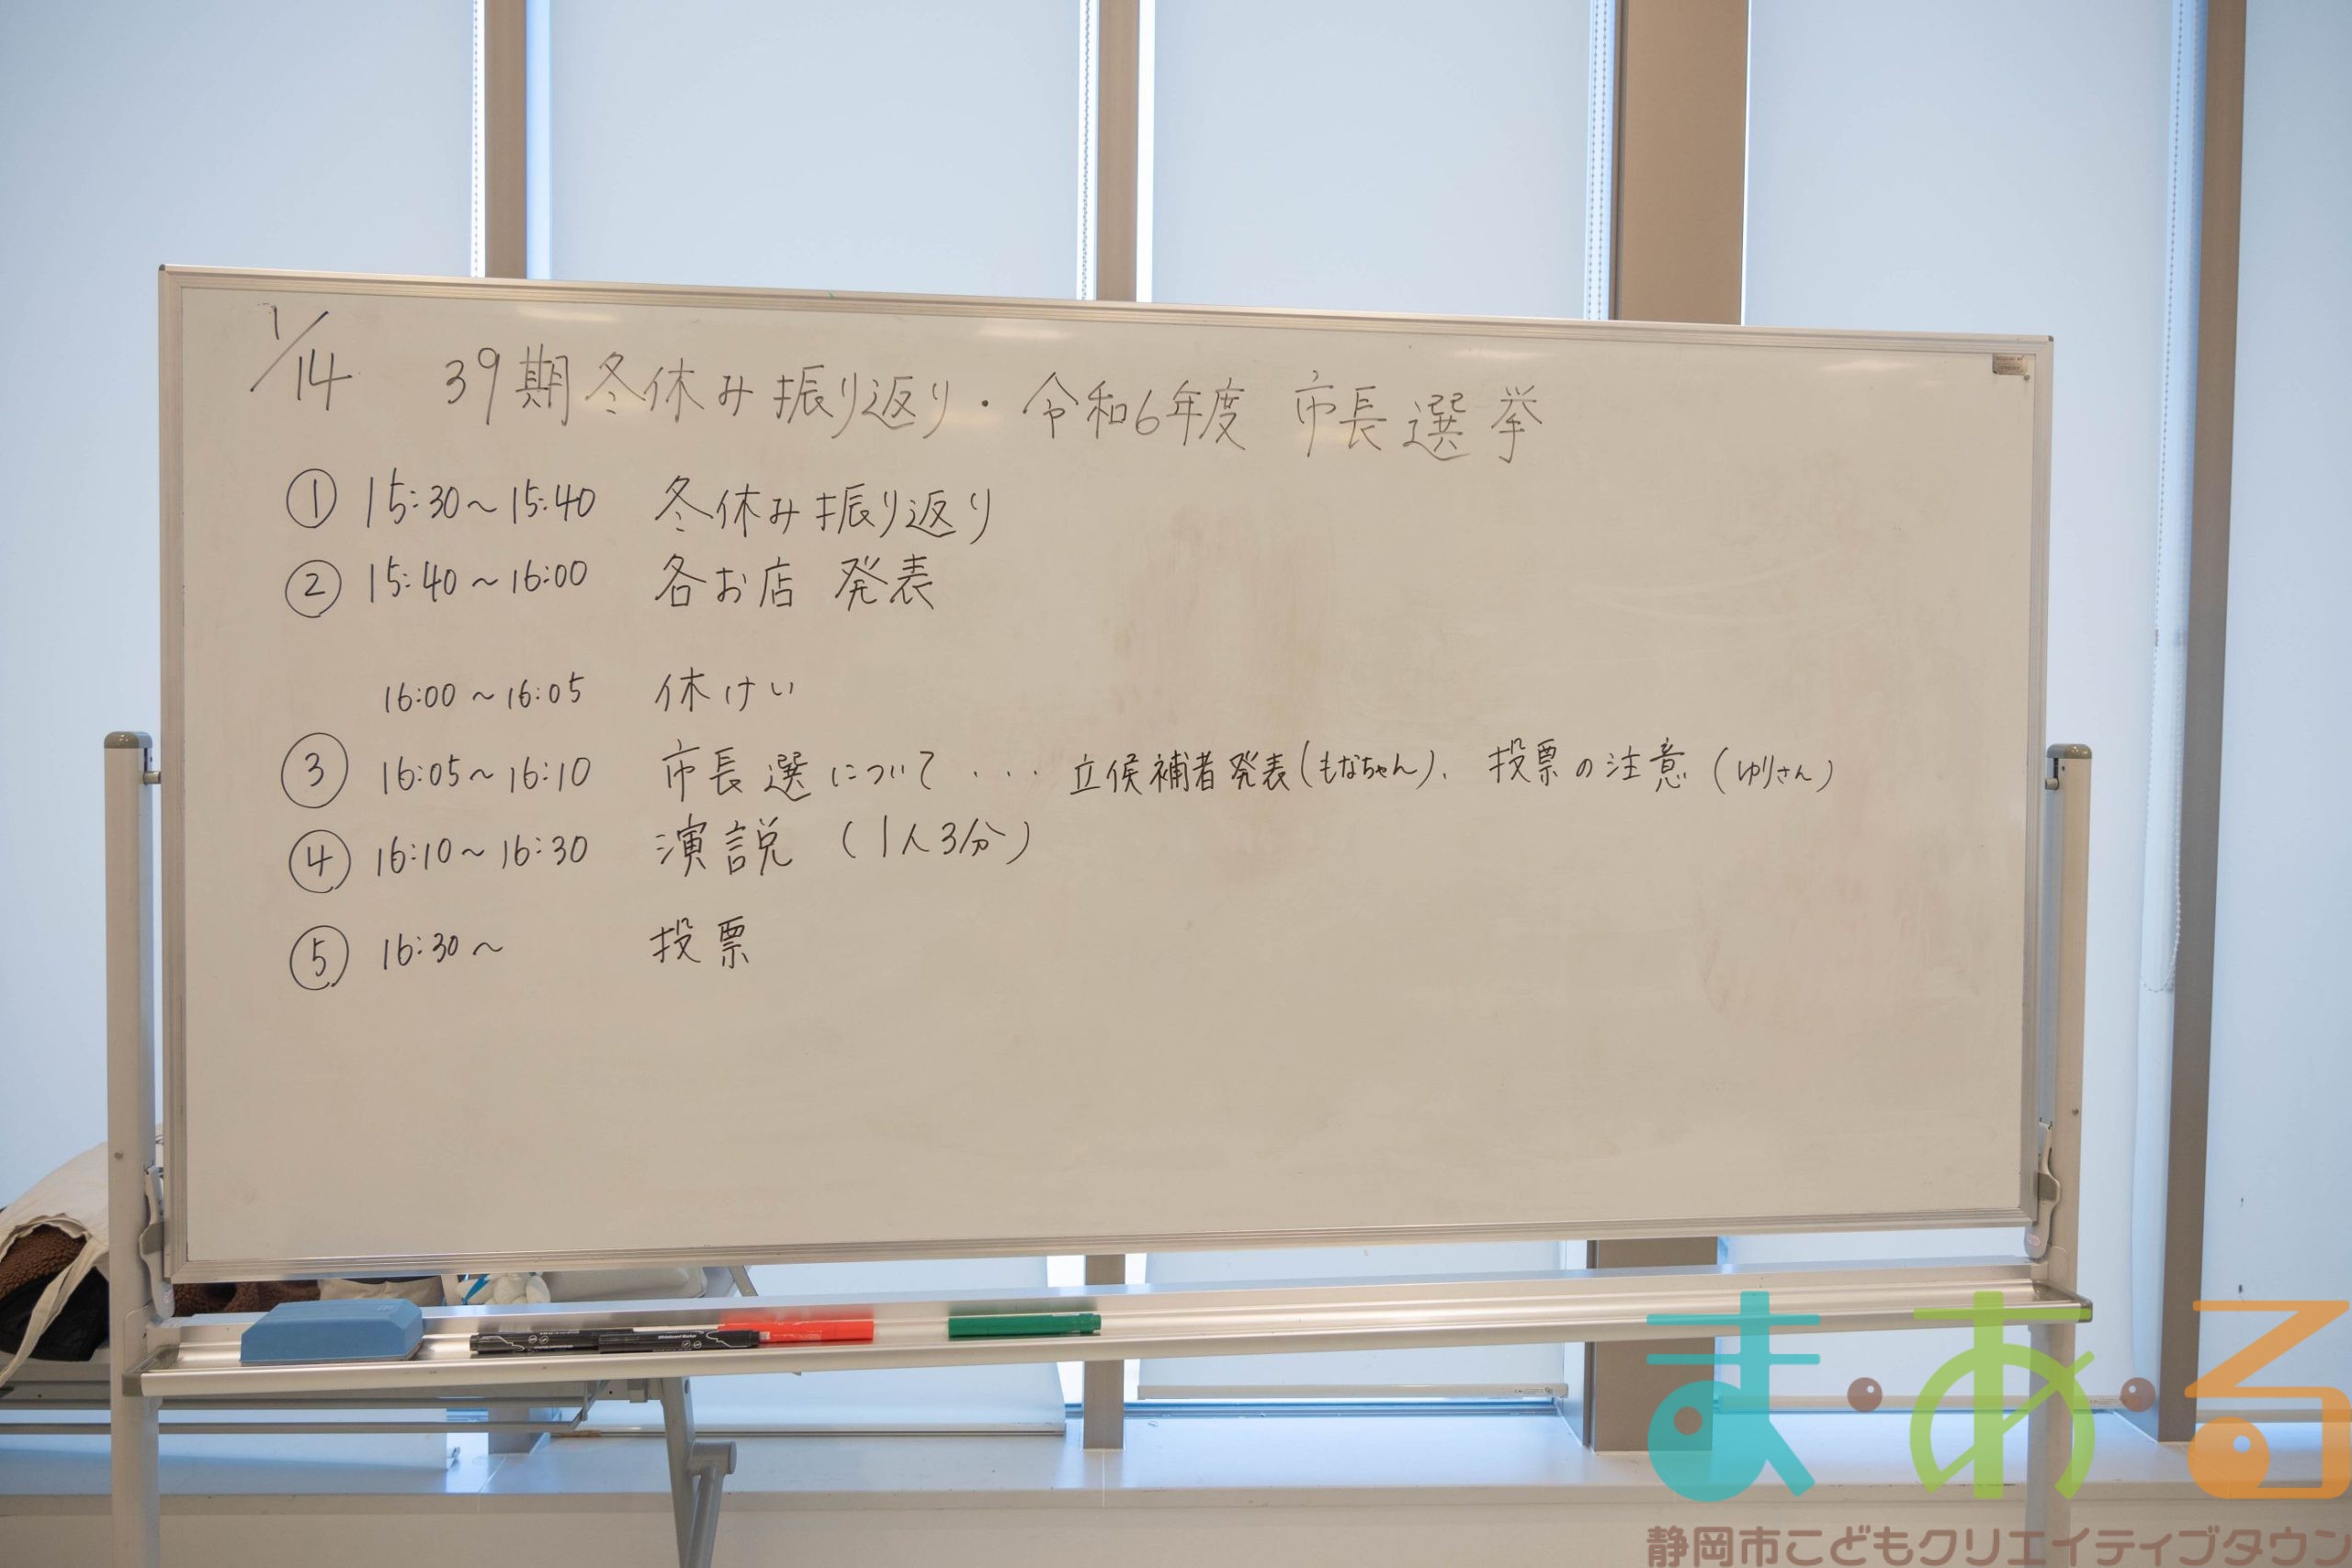 1/14 39期冬休み振り返り・令和6年度 市長選挙
① 15:30～15:40 冬休み振り返り
② 15:40～16:00 各お店 発表
16:00～16:05 休けい
③ 16:05～16:10 市長選について ... 立候補者発表(もなちゃん)、投票の注意(ゆりさん)
④ 16:10～16:30 演説 (1人3分)
⑤ 16:30～ 投票
ま・あ・る
静岡市こどもクリエイティブタウン